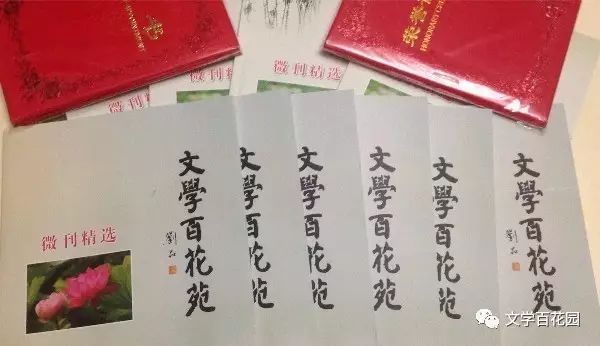 荣誉
HONORARY
微刊精选
微刊精选
微刊精选
微刊精选
文學百花苑
文學百花苑
文學百花苑
文學百花苑
文學百花苑
文學百花苑
文学百花园